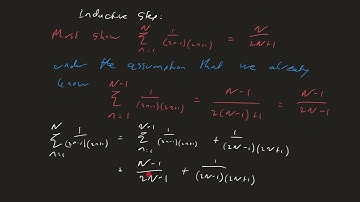 Inductive Step:
Must show \sum_{n=1}^{N} \frac{1}{(2n-1)(2n+1)} = \frac{N}{2N+1}
under the assumption that we already
know \sum_{n=1}^{N-1} \frac{1}{(2n-1)(2n+1)} = \frac{N-1}{2(N-1)+1} = \frac{N-1}{2N-1}
\sum_{n=1}^{N} \frac{1}{(2n-1)(2n+1)} = \sum_{n=1}^{N-1} \frac{1}{(2n-1)(2n+1)} + \frac{1}{(2N-1)(2N+1)}
= \frac{N-1}{2N-1} + \frac{1}{(2N-1)(2N+1)}